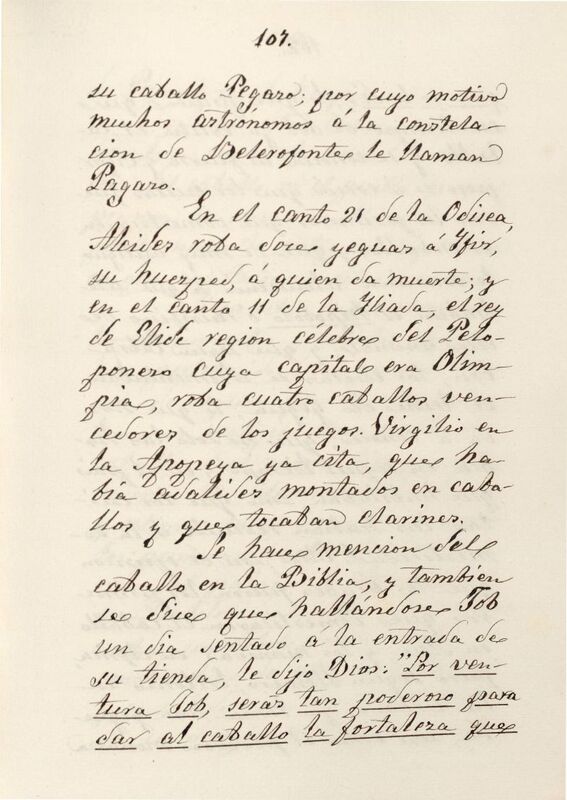 107.
su caballo Pegaso; por cuyo motivo
muchos astrónomos á la constela-
cion de Belerofonte le llaman
Pagaso.
En el canto 21 de la Odisea,
Alcides roba doce yeguas á Ifis,
su huesped, á quien da muerte; y
en el canto 11 de la Iliada, el rey
de Elide region célebre del Pelo-
poneso cuya capital era Olim-
pia, roba cuatro caballos ven-
cedores de los juegos. Virgilio en
la Apopeya ya cita, que ha-
bía adalides montados en caba-
llos y que tocaban clarines.
Se hace mencion del
caballo en la Biblia, y tambien
se dice que hallándose Job
un dia sentado á la entrada de
su tienda, le dijo Dios: "Por ven-
tura Job, serás tan poderoso para
dar al caballo la fortaleza que